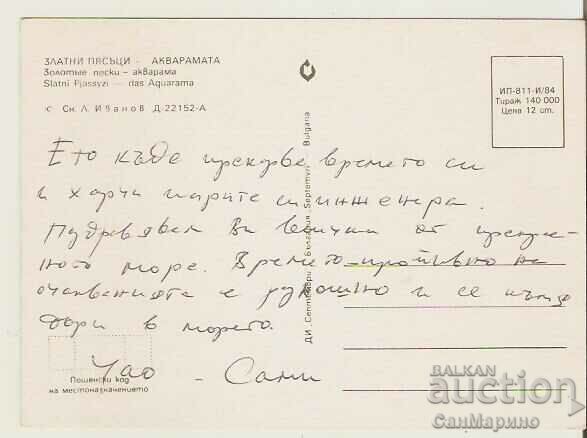 ЗЛАТНИ ПЯСЪЦИ - АКВАРАМАТА
Золотые пески - акварама
Slatni Pjassyzi - das Aquarama
Сн. Л. Иванов Д-22152-А
ИП-811-И/84
Тираж 140 000
Цена 12 ст.
Ето къде прекарва времето си
и харчи парите си инженера.
Поздравявам Ви всички от
море. Времето - противно на
очакванията е разкошно и се къпе
дори в морето.
Чао - Сами
Пощенски код
на местоназначението
ДИ „Септември" България „Septemvri" Bulgaria
BALKAN
auction
СанМарино